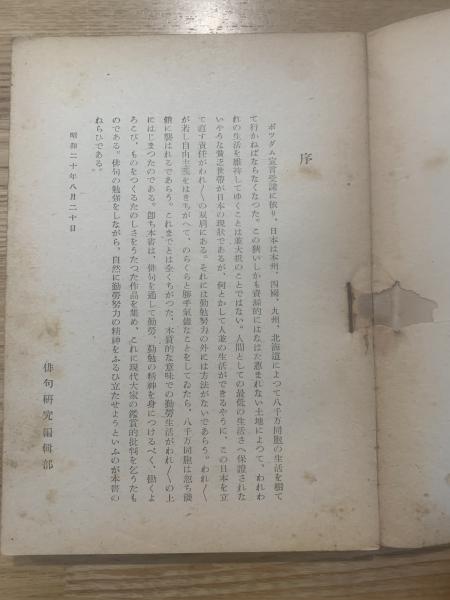 序
ポツダム宣言受諾に依り、日本は本州、四國、九州、北海道によつて八千万同胞の生活を樹て
て行かねばならなくなつた。この狹いしかも資源的にはなはだ惠まれない土地によつて、われわ
れの生活を維持してゆくことは並大抵のことではない。人間としての最低の生活さへ保證されな
いやうな貧乏世帶が日本の現狀であるが、何とかして人並の生活ができるやうに、この日本を立
て直す責任がわれ／＼の双肩にある。それには勤勉努力の外には方法がないであらう。われ／＼
が若し自由主義をはきちがへて、のらくらと勝手氣儘なことをしてゐたら、八千万同胞は忽ち饑
餓に襲はれるであらう。これまでとは全くちがつた、本質的な意味での勤勞生活がわれ／＼の上
にはじまつたのである。卽ち本書は、俳句を通して勤勞、勤勉の精神を身につけるべく、働くよ
ろこび、ものをつくるたのしさをうたつた作品を集め、これに現代大家の鑑賞的批判を乞うたも
のである。俳句の勉强をしながら、自然に勤勞努力の精神をふるひ立たせようといふのが本書の
ねらひである。
昭和二十年八月二十日
俳句硏究編輯部